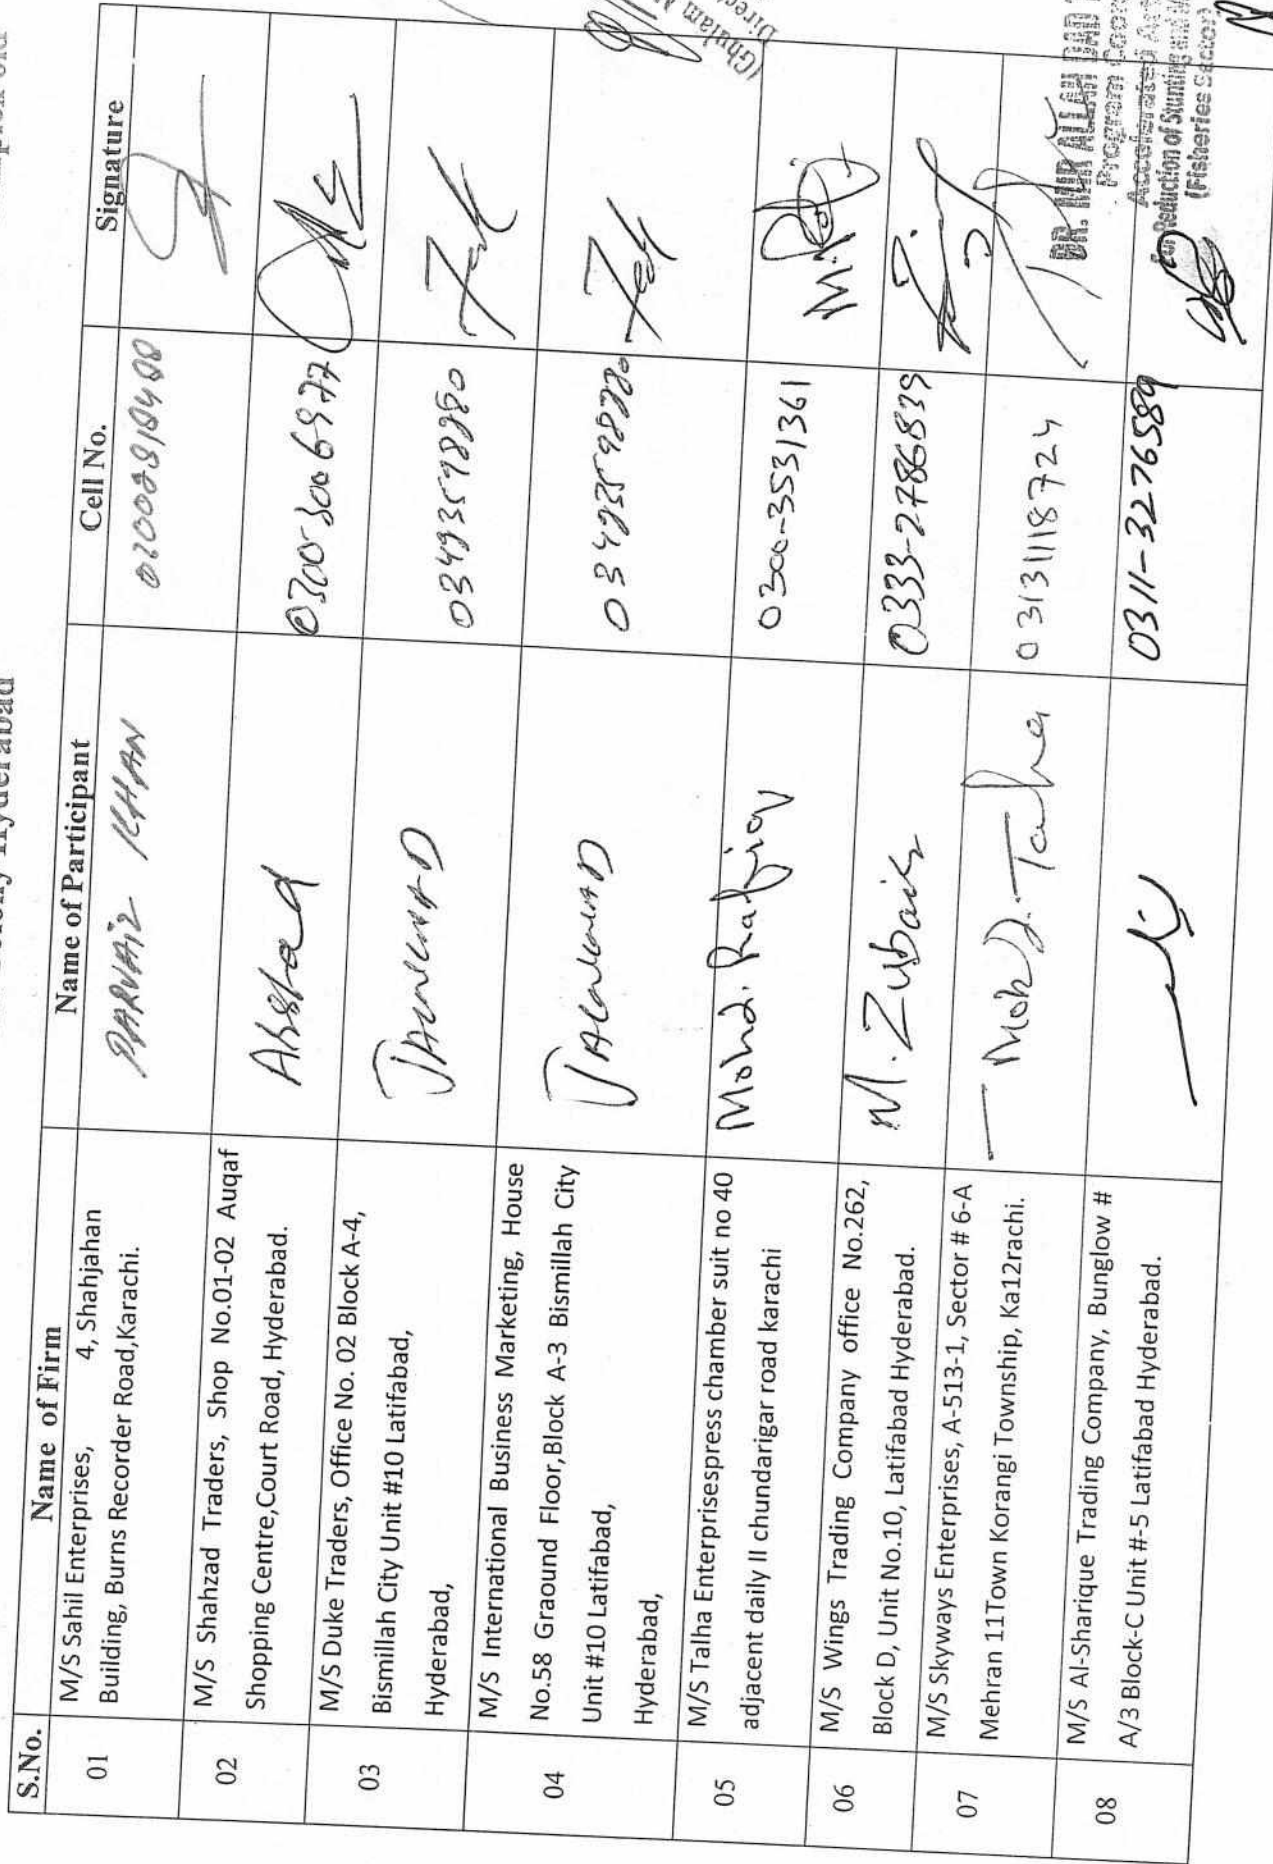 Colony Hyderabad
S.No. Name of Firm Name of Participant Cell No. Signature
01 M/S Sahil Enterprises, 4, Shahjahan
Building, Burns Recorder Road,Karachi.
PARVAIZ KHAN
02 M/S Shahzad Traders, Shop No.01-02 Auqaf
Shopping Centre,Court Road, Hyderabad.
Arshad 0300-3006977
03 M/S Duke Traders, Office No. 02 Block A-4,
Bismillah City Unit #10 Latifabad,
Hyderabad,
04 M/S International Business Marketing, House
No.58 Graound Floor,Block A-3 Bismillah City
Unit #10 Latifabad,
Hyderabad,
05 M/S Talha Enterprisespress chamber suit no 40
adjacent daily II chundarigar road karachi
Mohd. Rafiq 0300-3531361 M.Rafiq
06 M/S Wings Trading Company office No.262,
Block D, Unit No.10, Latifabad Hyderabad.
M. Zubair 0333-2786839
07 M/S Skyways Enterprises, A-513-1, Sector # 6-A
Mehran 11Town Korangi Township, Ka12rachi.
Mohd. Taha 03131118724
08 M/S Al-Sharique Trading Company, Bunglow #
A/3 Block-C Unit #-5 Latifabad Hyderabad.
Ali 0311-3276589
(Ghulam
DR. MIR ALLAH DAD
Program
Accelerated
for Reduction of Stunting and
(Fisheries Sector)